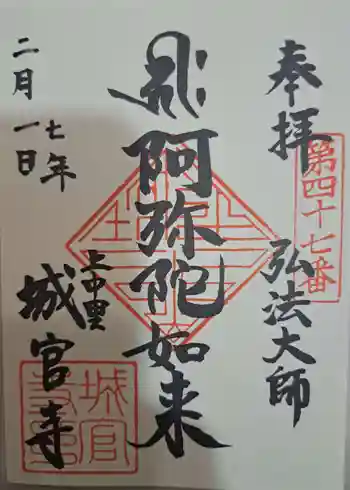 奉拝
第四十七番
弘法大師
阿弥陀如来
上中里
城官寺
七年
二月一日
城官
寺